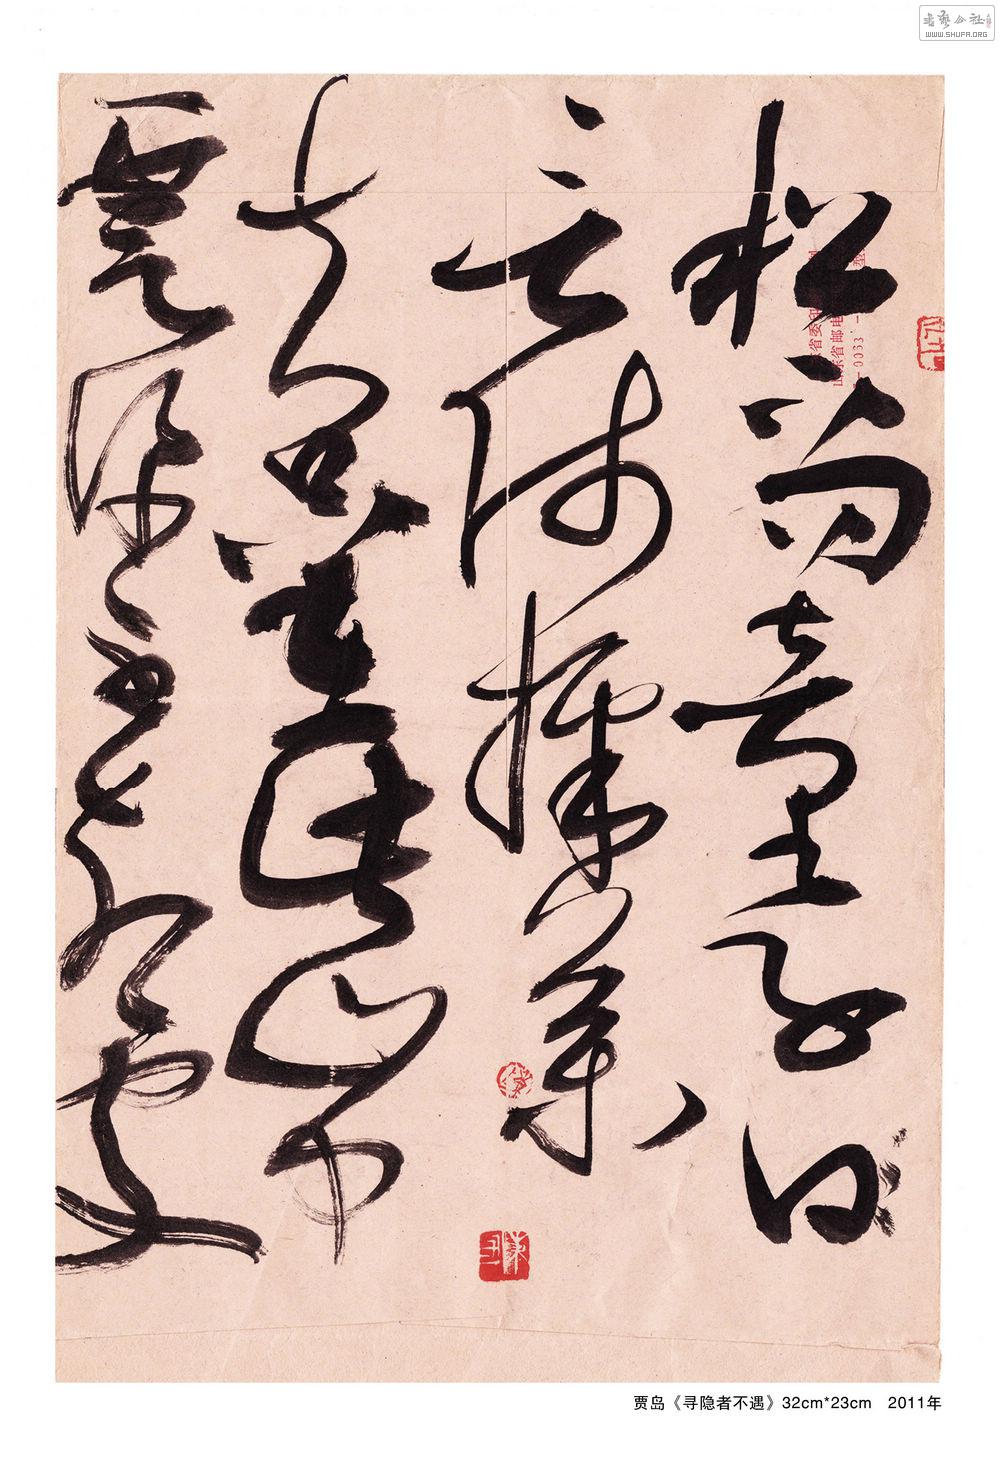 书艺公社
WWW.SHUFA.ORG
松下問童子
言師採藥
去只在此山中
雲深不知處
贾岛《寻隐者不遇》32cm*23cm 2011年